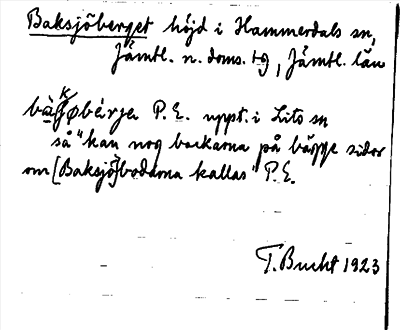 Baksjöberget höjd i Hammerdals sn,
Jämtl. n. doms. tg, Jämtl. län
P. E. uppt. i Lits sn
så "kan nog backarna på sidor
om [Baksjö]bodarna kallas" P. E.
T. Bucht 1923